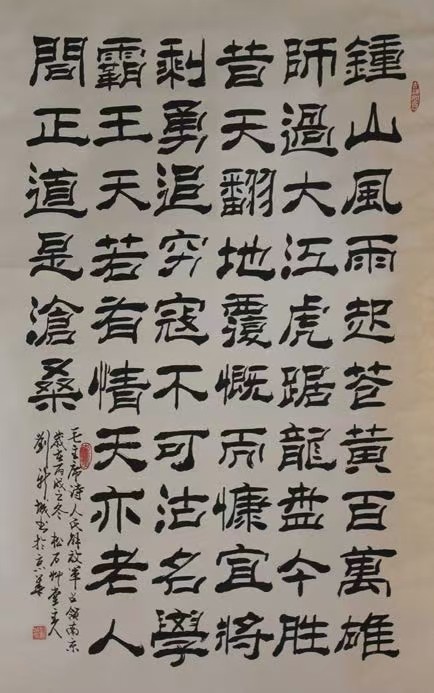 鍾山風雨起苍黃百萬雄
師過大江虎踞龍盘今勝
昔天翻地覆慨而慷宜將
剩勇追穷寇不可沽名學
霸王天若有情天亦老人
間正道是滄桑
毛主席诗人民解放军占领南京
歲在丙戌之冬松石艸堂主人
劉新城书於京華